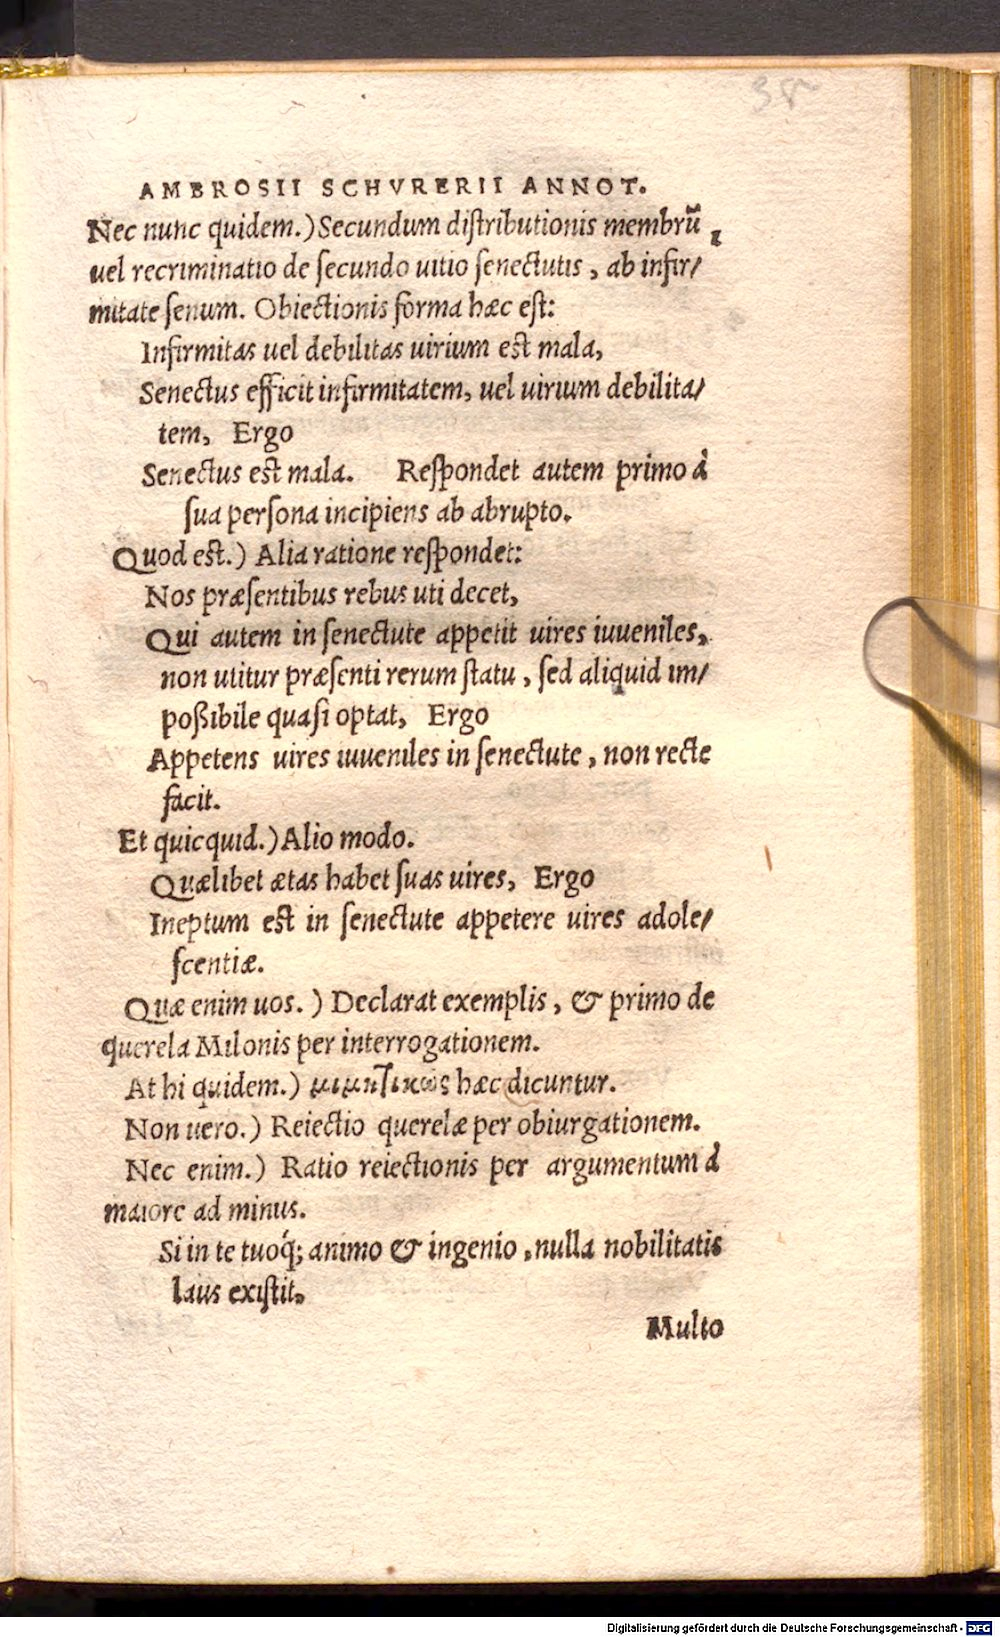 38
AMBROSII SCHVRERII ANNOT.
Nec nunc quidem.) Secundum distributionis membrũ,
uel recriminatio de secundo uitio senectutis, ab infir/
mitate senum. Obiectionis forma hæc est:
Infirmitas uel debilitas uirium est mala,
Senectus efficit infirmitatem, uel uirium debilita/
tem, Ergo
Senectus est mala. Respondet autem primo à
sua persona incipiens ab abrupto.
Quod est.) Alia ratione respondet:
Nos præsentibus rebus uti decet,
Qui autem in senectute appetit uires iuueniles,
non utitur præsenti rerum statu, sed aliquid im/
poßibile quasi optat, Ergo
Appetens uires iuueniles in senectute, non recte
facit.
Et quicquid.) Alio modo.
Quælibet ætas habet suas uires, Ergo
Ineptum est in senectute appetere uires adole/
scentiæ.
Quæ enim uos.) Declarat exemplis, & primo de
querela Milonis per interrogationem.
At hi quidem.) μιμητικως hæc dicuntur.
Non uero.) Reiectio querelæ per obiurgationem.
Nec enim.) Ratio reiectionis per argumentum à
maiore ad minus.
Si in te tuoq́; animo & ingenio, nulla nobilitatis
laus existit,
Multo
Digitalisierung gefördert durch die Deutsche Forschungsgemeinschaft - DFG